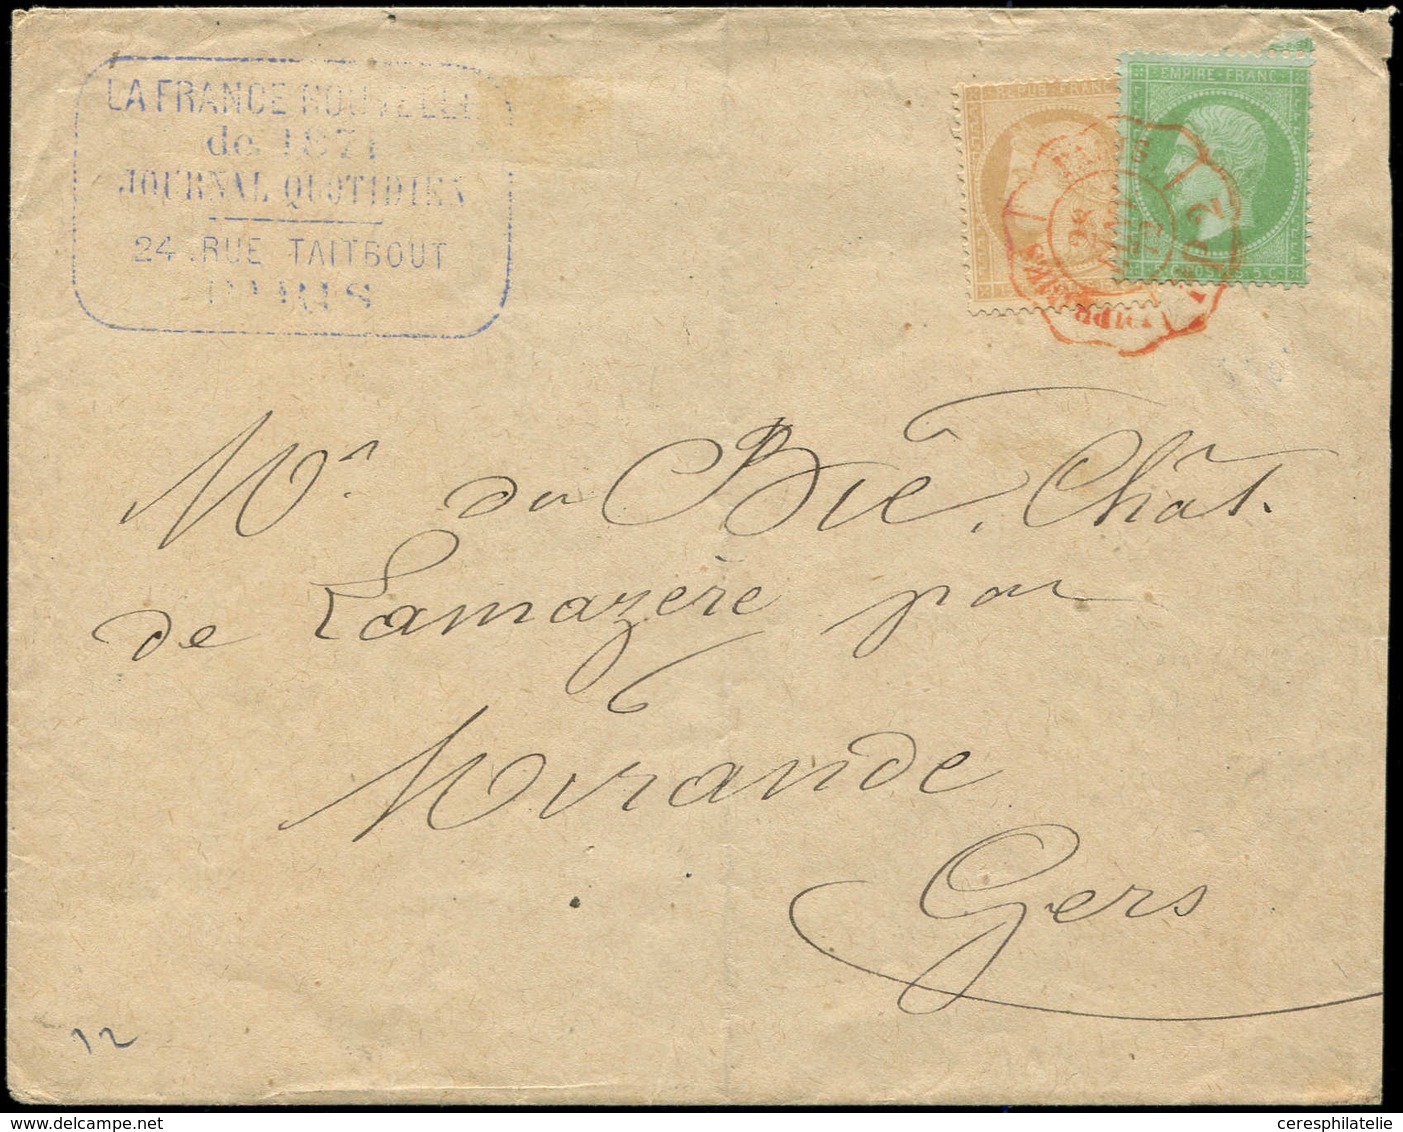 LA FRANCE NOUVELLE
de 1871
JOURNAL QUOTIDIEN
24 RUE TAITBOUT
PARIS
REPUB. FRANC
EMPIRE FRANC
PARIS
IMPRIMÉS
PD2
Mr. du Bié, Chât.
de Lamazère par
Mirande
Gers
12
ceresphilatelie